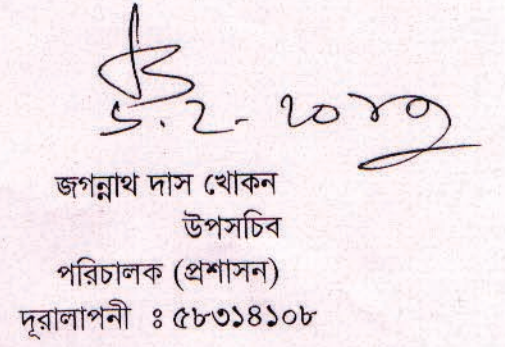 জগন্নাথ দাস খোকন
উপসচিব
পরিচালক (প্রশাসন)
দূরালাপনী ঃ ৫৮৩১৪১০৮